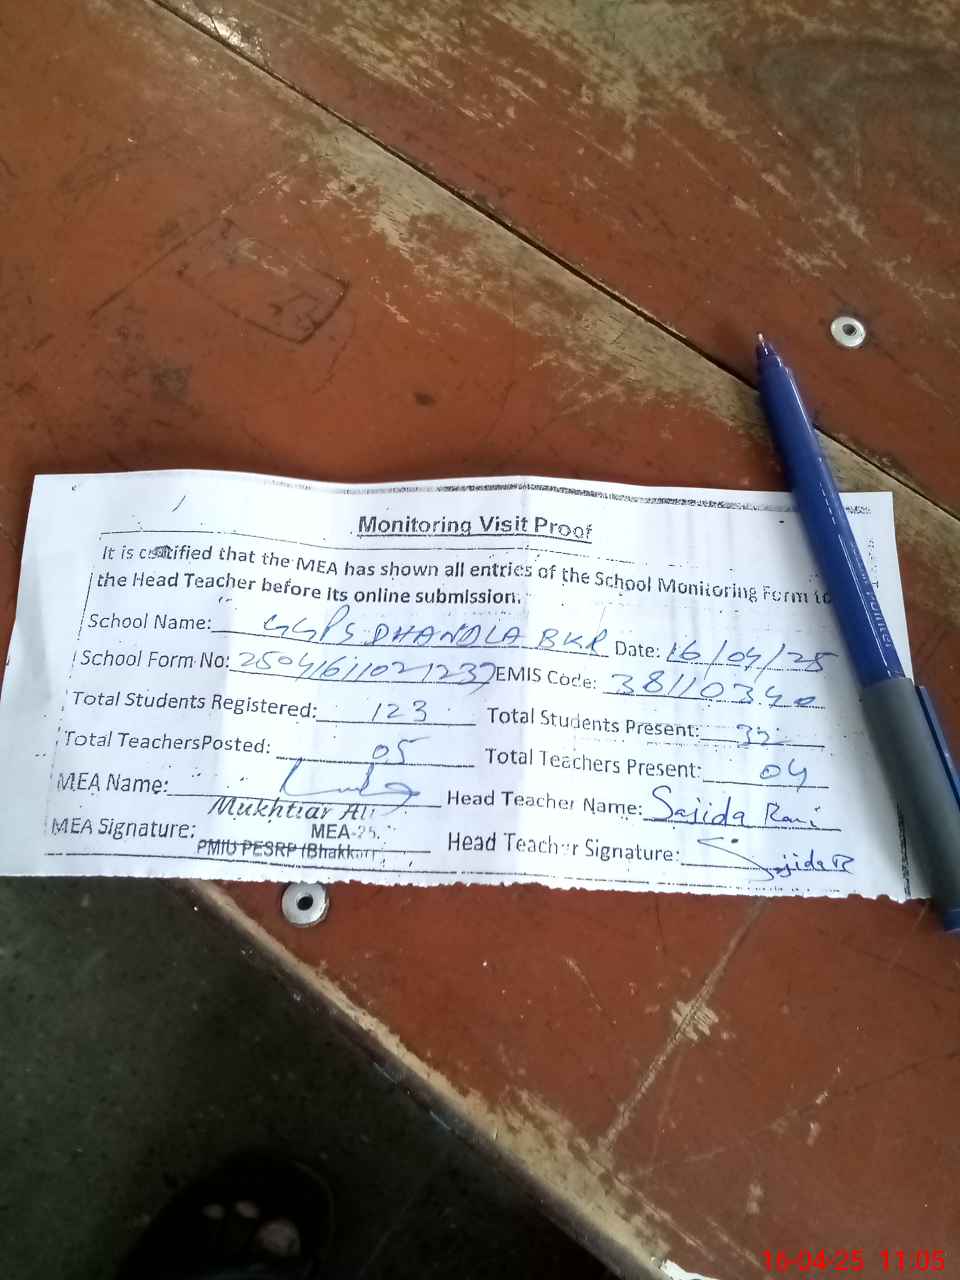 Monitoring Visit Proof
It is certified that the MEA has shown all entries of the School Monitoring Form to
the Head Teacher before its online submission.
School Name: GGPS DHANDLA BKR Date: 16/04/25
School Form No: 25041611021237 EMIS Code: 38110340
Total Students Registered: 123 Total Students Present: 32
Total TeachersPosted: 05 Total Teachers Present: 04
MEA Name: Head Teacher Name: Sajida Rani
Mukhtiar Ali
MEA Signature: MEA-25, Head Teacher Signature: Sajida R
PMIU PESRP (Bhakkar)
16-04-25 11:05